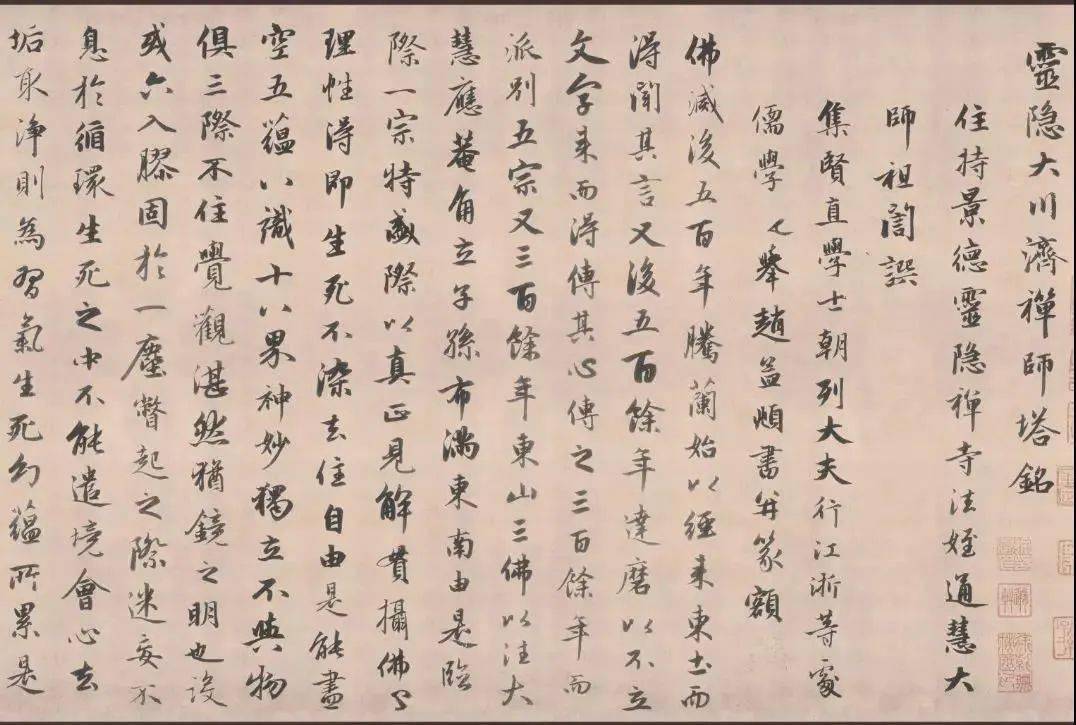 靈隐大川濟禪師塔銘
住持景德靈隐禅寺法姪通慧大
師祖誾譔
集賢直學士朝列大夫行江浙等處
儒學舉趙孟頫書并篆額
佛滅後五百年騰蘭始以經来東土而
得聞其言又後五百餘年達磨以不立
文字来而得傳其心傳之三百餘年而
派別五宗又三百餘年東山三佛以法大
慧應菴角立子孫布滿東南由是臨
際一宗特盛際以真正見解貫攝佛〻
理性得即生死不染去住自由是能盡
空五蕴八識十八界神妙獨立不與物
俱三際不住覺觀湛然猶鏡之明也設
或六入膠固於一塵瞥起之際迷妄不
息於循環生死之中不能遣境會心去
垢取淨則為習氣生死幻蕴所累是